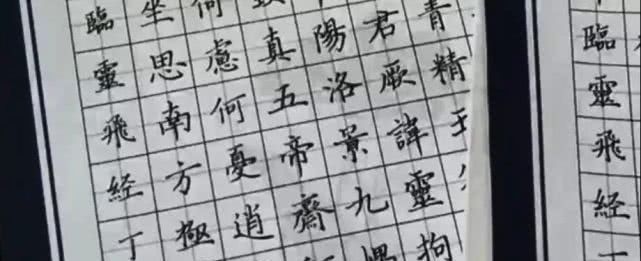 臨靈飛経
青精
君厥諱靈拘
陽洛景九
真五帝齋
何慮何憂逍
坐思南方極
臨靈飛経丁